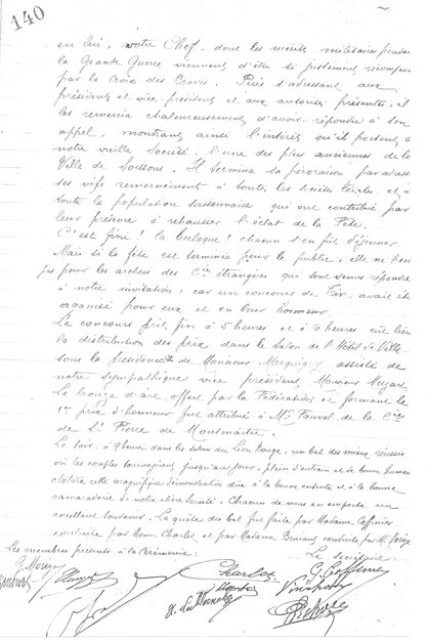 140
en lui, notre Chef, dont les mérites militaires pendant
la Grande Guerre viennent d'être si justement récompensés
par la Croix des Braves. Puis s'adressant aux
présidents et vice présidents et aux autorités présentes, il
les remercia chaleureusement d'avoir répondu à son
appel, montrant ainsi l'intérêt qu'ils portent à
notre vieille Société, l'une des plus anciennes de la
Ville de Soissons. Il termina sa péroraison par adresser
ses vifs remerciements à toutes les sociétés locales et à
toute la population soissonnaise qui ont contribué par
leur présence à rehausser l'éclat de la Fête.
C'est fini ! la berloque ! chacun s'en fut déjeuner.
Mais si la fête est terminée pour le public, elle ne l'est
pas pour les archers des Cies étrangères qui sont venus répondre
à notre invitation, car un concours de Tir avait été
organisé pour eux et en leur honneur.
Le concours prit fin à 5 heures et à 6 heures eut lieu
la distribution des prix dans le salon de l'Hôtel de Ville
sous la présidence de Monsieur assisté de
notre sympathique vice président, Monsieur
Le bronze d'art, offert par la Fédération et formant le
1er prix d'honneur fut attribué à Mr Fauvel de la Cie
de St Pierre de Montmartre.
Le soir, à 9 heures dans les salons du Lion Rouge, un bal des mieux réussis
où les couples tournoyèrent jusqu'au jour, plein d'entrain et de bonne humeur
clotura cette magnifique démonstration due à la bonne entente et à la bonne
camaraderie de notre chère Société. Chacun de nous en emporta un
excellent souvenir. La quête du bal fut faite par Madame
conduite par Charlet, et par Madame conduite par M.
Les membres présents à la Cérémonie : Le secrétaire